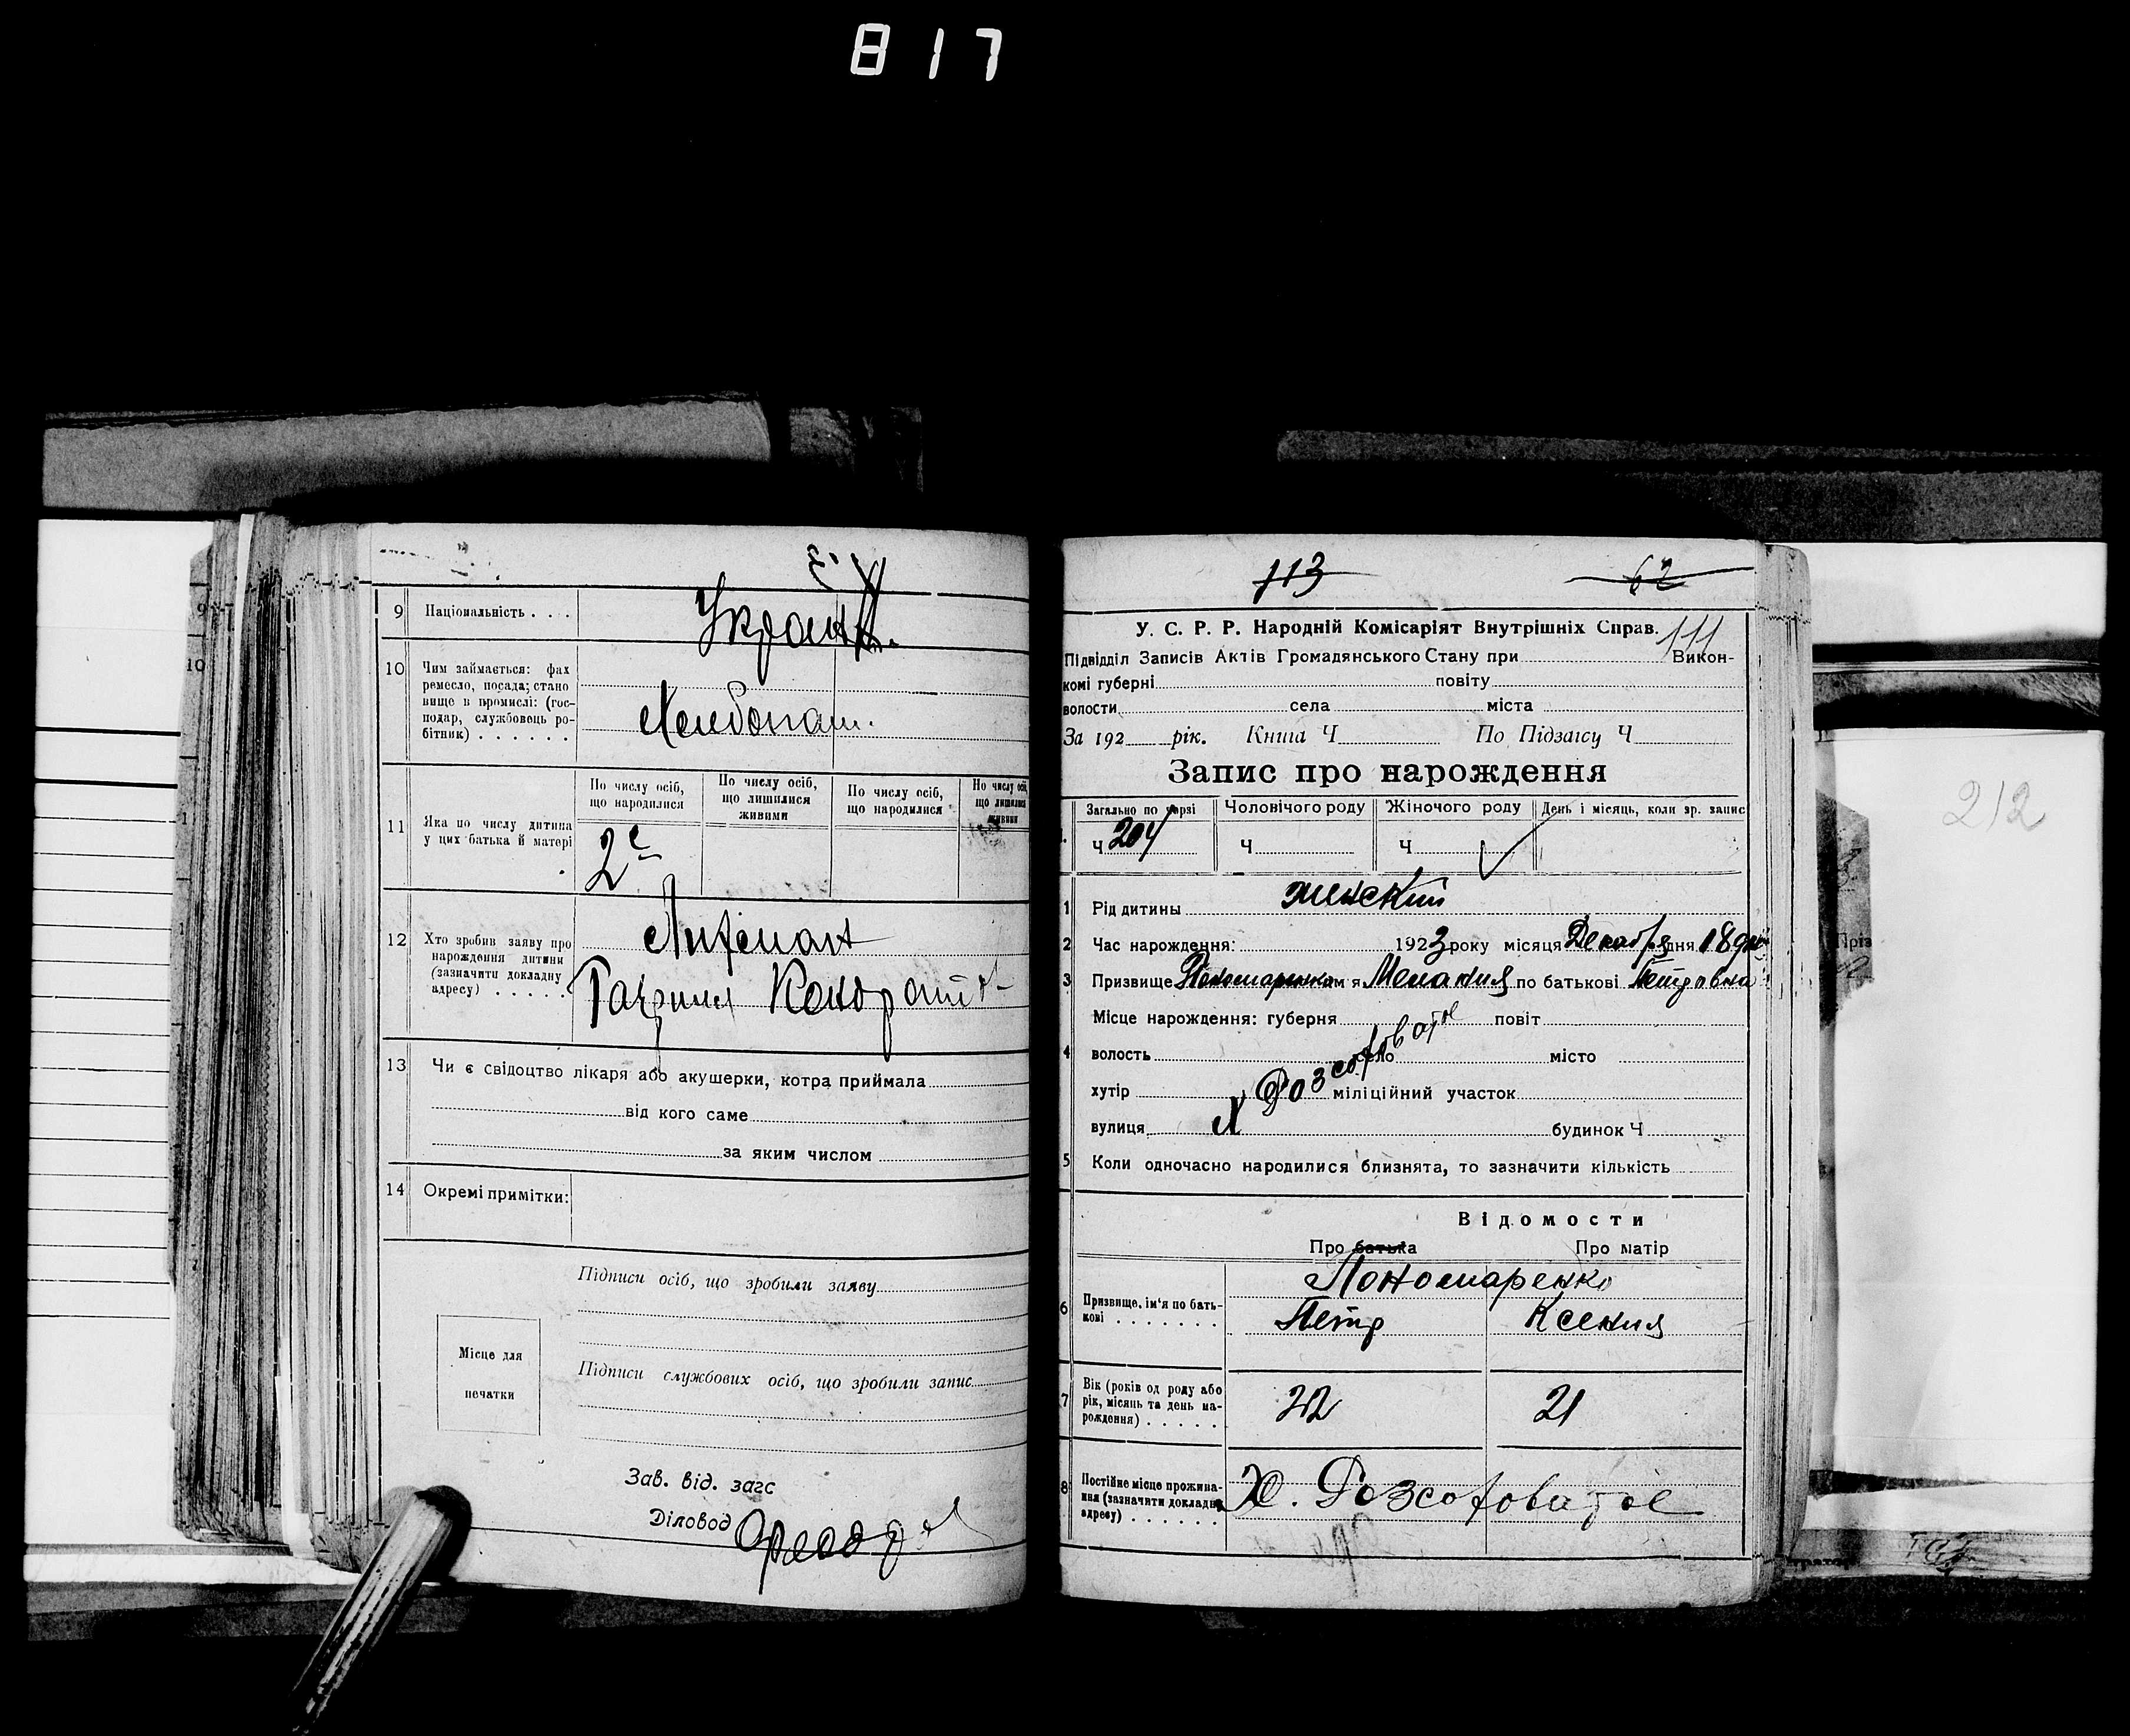 817
9 Національність . . . .
Украин
10 Чим займається: фах
ремесло, посада; стано
вище в промислі: (гос-
подар, службовець ро-
бітник) . . . . . .
Хлебопаш.
11 Яка по числу дитина
у цих батька й матері
По числу осіб,
що народилися
По числу осіб,
що лишилися
живими
По числу осіб,
що народилися
По числу осіб,
що лишилися
живими
2е
12 Хто зробив заяву про
нарождення дитини
(зазначити докладну
адресу) . . . . .
13 Чи є свідоцтво лікаря або акушерки, котра приймала
від кого саме
за яким числом
14 Окремі примітки:
Підписи осіб, що зробили заяву
Місце для
печатки
Підписи службових осіб, що зробили запис
Зав. від. загс
Діловод
113
62
У. С. Р. Р. Народній Комісаріят Внутрішніх Справ.
111
Підвідділ Записів Актів Громадянського Стану при Викон-
комі губерні повіту
волости села міста
За 192 рік. Книга Ч По Підзагсу Ч
Запис про нарождення
Загально по черзі Чоловічого роду Жіночого роду День і місяць, коли зр. запис
Ч 204 Ч Ч
1 Рід дитини женский
2 Час нарождення: 1923 року місяця Декабря дня 18
3 Призвище Пономаренко ім'я Мелания по батькові Петровна
Місце нарождення: губерня повіт
4 волость село місто
хутір міліційний участок
вулиця будинок Ч
Х Розсоховатое
5 Коли одночасно народилися близнята, то зазначити кількість
Відомости
Про батька Про матір
6 Призвище, ім'я по бать-
кові . . . . . . .
Пономаренко
Петр Ксения
7 Вік (років од роду або
рік, місяць та день на-
рождення) . . . . .
22 21
8 Постійне місце прожива-
ння (зазначити докладну
адресу) . . . . . .
Х. Розсоховатое
212